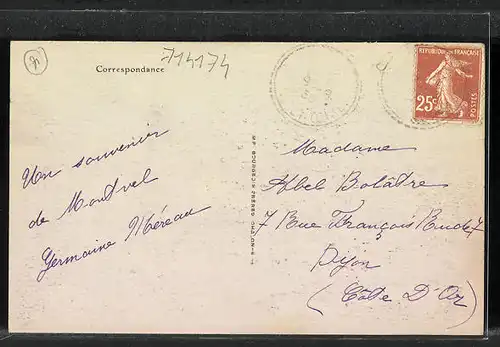 4
714174
Correspondance
REPUBLIQUE FRANÇAISE
25c
POSTES
Un souvenir
de Montvel
Germaine Méreau
Madame
Abel Bolâtre
7 Rue François Rude 7
Dijon
(Côte D'Or)